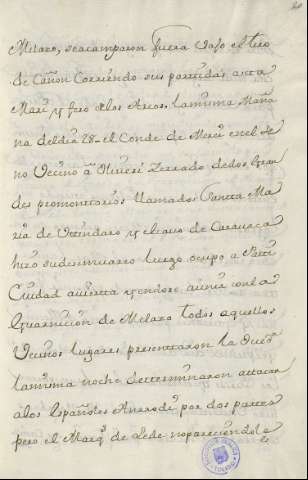 Milazo, se acamparon fuera vajo el tiro
de Cañon Corriendo sus partidas asta
Mari y fero alos Arcos. la misma Maña
na del dia 28. el Conde de Merci en el Se
no Vecino à Oliveri Zerrado de dos Gran
des promontorios llamados Santa Ma
ria de Vtindaro y el cavo de Caravaca
hizo su desimvarco luego ocupo a Patti
Ciudad avierta y en do se a unir con la
Guarnicion de Melazo todos aquellos
Vecinos lugares presentaron la Ove
la misma noche determinaron attacar
alos Españoles Anrode por dos partes
pero el Marq.s de Lede no pareciendole